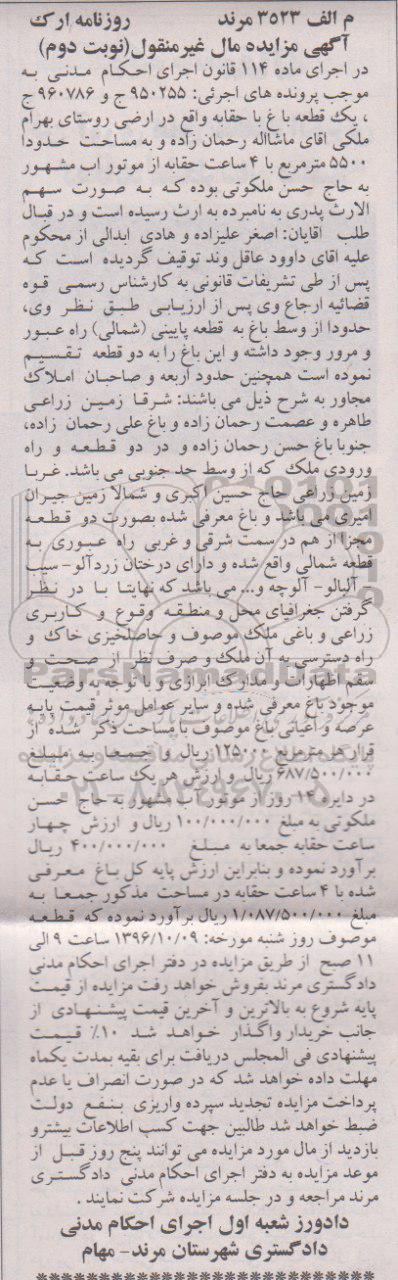 م الف ۳۵۲۳ مرند روزنامه ارک
آگهی مزایده مال غیرمنقول(نوبت دوم)
در اجرای ماده ۱۱۴ قانون اجرای احکام مدنی به
موجب پرونده های اجرئی: ۹۵۰۲۵۵ ج و ۹۶۰۷۸۶ ج
، یک قطعه باغ با حقابه واقع در ارضی روستای بهرام
ملکی اقای ماشااله رحمان زاده و به مساحت حدودا
۵۵۰۰ مترمربع با ۴ ساعت حقابه از موتور اب مشهور
به حاج حسن ملکوتی بوده که به صورت سهم
الارث پدری به نامبرده به ارث رسیده است و در قبال
طلب اقایان: اصغر علیزاده و هادی ابدالی از محکوم
علیه اقای داوود عاقل وند توقیف گردیده است که
پس از طی تشریفات قانونی به کارشناس رسمی قوه
قضائیه ارجاع وی پس از ارزیابی طبق نظر وی،
حدودا از وسط باغ به قطعه پایینی (شمالی) راه عبور
و مرور وجود داشته و این باغ را به دو قطعه تقسیم
نموده است همچنین حدود اربعه و صاحبان املاک
مجاور به شرح ذیل می باشند: شرقا زمین زراعی
طاهره و عصمت رحمان زاده و باغ علی رحمان زاده،
جنوبا باغ حسن رحمان زاده و در دو قطعه و راه
ورودی ملک که از وسط حد جنوبی می باشد. غربا
زمین زراعی حاج حسین اکبری و شمالا زمین جیران
امیری می باشد و باغ معرفی شده بصورت دو قطعه
مجزا از هم در سمت شرقی و غربی راه عبوری به
قطعه شمالی واقع شده و دارای درختان زردآلو- سیب
- آلبالو- آلوچه و... می باشد که نهایتا با در نظر
گرفتن جغرافیای محل و منطقه وقوع و کاربری
زراعی و باغی ملک موصوف و حاصلخیزی خاک و
راه دسترسی به آن ملک و صرف نظر از صحت و
سقم اظهارات و مدارک ابرازی و با توجه به وضعیت
موجود باغ معرفی شده و سایر عوامل موثر قیمت پایه
عرصه و اعیانی باغ موصوف با مساحت ذکر شده از
قرار هر مترمربع ۱۲۵۰۰۰ ریال و جمعا به مبلغ
۶۸۷/۵۰۰/۰۰۰ ریال و ارزش هر یک ساعت حقابه
در دایره ۱۴ روز از موتور اب مشهور به حاج حسن
ملکوتی به مبلغ ۱۰۰/۰۰۰/۰۰۰ ریال و ارزش چهار
ساعت حقابه جمعا به مبلغ ۴۰۰/۰۰۰/۰۰۰ ریال
برآورد نموده و بنابراین ارزش پایه کل باغ معرفی
شده با ۴ ساعت حقابه در مساحت مذکور جمعا به
مبلغ ۱/۰۸۷/۵۰۰/۰۰۰ ریال برآورد نموده که قطعه
موصوف روز شنبه مورخه: ۱۳۹۶/۱۰/۰۹ ساعت ۹ الی
۱۱ صبح از طریق مزایده در دفتر اجرای احکام مدنی
دادگستری مرند بفروش خواهد رفت مزایده از قیمت
پایه شروع به بالاترین و آخرین قیمت پیشنهادی از
جانب خریدار واگذار خواهد شد ۱۰٪ قیمت
پیشنهادی فی المجلس دریافت برای بقیه بمدت یکماه
مهلت داده خواهد شد که در صورت انصراف یا عدم
پرداخت مزایده تجدید سپرده واریزی بنفع دولت
ضبط خواهد شد طالبین جهت کسب اطلاعات بیشترو
بازدید از مال مورد مزایده می توانند پنج روز قبل از
موعد مزایده به دفتر اجرای احکام مدنی دادگستری
مرند مراجعه و در جلسه مزایده شرکت نمایند .
دادورز شعبه اول اجرای احکام مدنی
دادگستری شهرستان مرند- مهام
ParsNamadData
۰۲۱-۸۸۳۴۹۶۷۰-۵